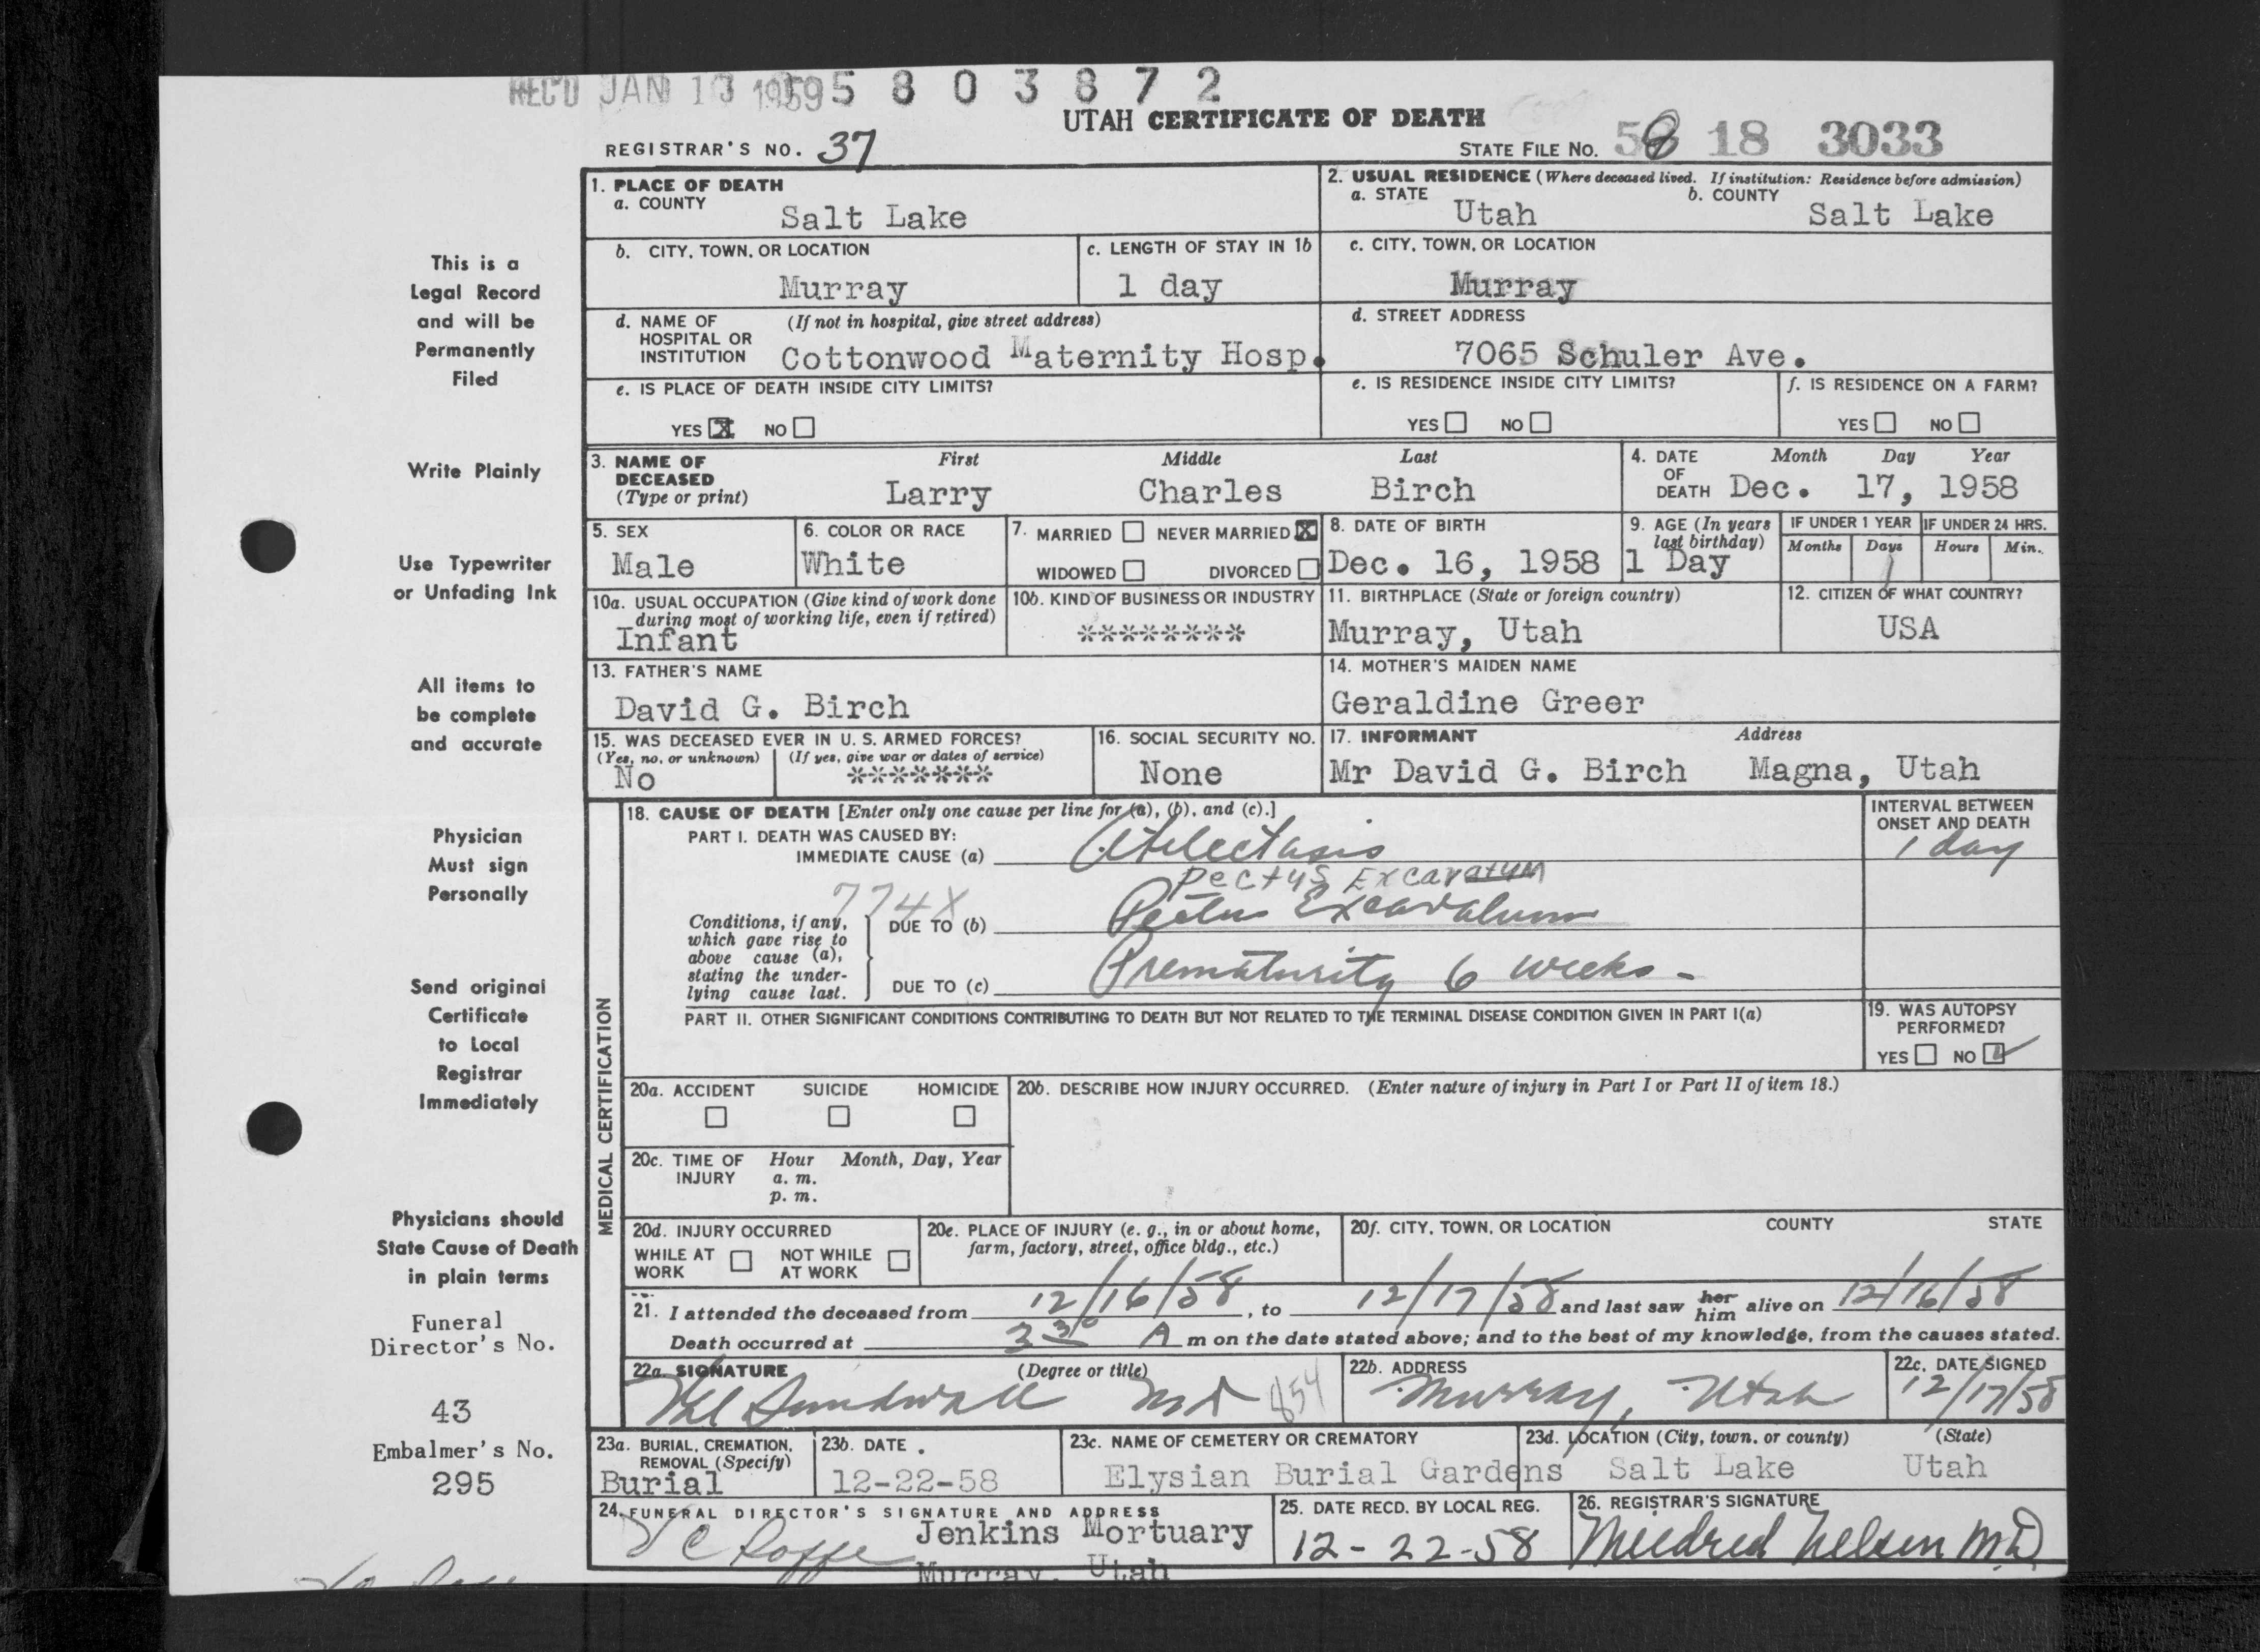 REC'D JAN 13 1959 5 8 0 3 8 7 2
UTAH CERTIFICATE OF DEATH
REGISTRAR'S NO. 37
STATE FILE NO. 58 18 3033
This is a
Legal Record
and will be
Permanently
Filed
Write Plainly
Use Typewriter
or Unfading Ink
All items to
be complete
and accurate
Physician
Must sign
Personally
Send original
Certificate
to Local
Registrar
Immediately
Physicians should
State Cause of Death
in plain terms
Funeral
Director's No.
43
Embalmer's No.
295
1. PLACE OF DEATH
a. COUNTY
Salt Lake
2. USUAL RESIDENCE (Where deceased lived. If institution: Residence before admission)
a. STATE b. COUNTY
Utah Salt Lake
b. CITY, TOWN, OR LOCATION
Murray
c. LENGTH OF STAY IN 1b
1 day
c. CITY, TOWN, OR LOCATION
Murray
d. NAME OF (If not in hospital, give street address)
HOSPITAL OR
INSTITUTION Cottonwood Maternity Hosp.
d. STREET ADDRESS
7065 Schuler Ave.
e. IS PLACE OF DEATH INSIDE CITY LIMITS?
YES X NO
e. IS RESIDENCE INSIDE CITY LIMITS?
YES NO
f. IS RESIDENCE ON A FARM?
YES NO
3. NAME OF First Middle Last
DECEASED
(Type or print) Larry Charles Birch
4. DATE Month Day Year
OF
DEATH Dec. 17, 1958
5. SEX
Male
6. COLOR OR RACE
White
7. MARRIED NEVER MARRIED X
WIDOWED DIVORCED
8. DATE OF BIRTH
Dec. 16, 1958
9. AGE (In years
last birthday)
1 Day
IF UNDER 1 YEAR
Months Days
1
IF UNDER 24 HRS.
Hours Min.
10a. USUAL OCCUPATION (Give kind of work done
during most of working life, even if retired)
Infant
10b. KIND OF BUSINESS OR INDUSTRY
********
11. BIRTHPLACE (State or foreign country)
Murray, Utah
12. CITIZEN OF WHAT COUNTRY?
USA
13. FATHER'S NAME
David G. Birch
14. MOTHER'S MAIDEN NAME
Geraldine Greer
15. WAS DECEASED EVER IN U. S. ARMED FORCES?
(Yes, no, or unknown) (If yes, give war or dates of service)
No *******
16. SOCIAL SECURITY NO.
None
17. INFORMANT Address
Mr David G. Birch Magna, Utah
MEDICAL CERTIFICATION
18. CAUSE OF DEATH [Enter only one cause per line for (a), (b), and (c).]
PART I. DEATH WAS CAUSED BY:
IMMEDIATE CAUSE (a) Atelectasis
INTERVAL BETWEEN
ONSET AND DEATH
1 day
Pectus Excavatum
774X
Conditions, if any,
which gave rise to
above cause (a),
stating the under-
lying cause last.
DUE TO (b) Pectus Excavatum
DUE TO (c) Prematurity 6 weeks -
PART II. OTHER SIGNIFICANT CONDITIONS CONTRIBUTING TO DEATH BUT NOT RELATED TO THE TERMINAL DISEASE CONDITION GIVEN IN PART I(a)
19. WAS AUTOPSY
PERFORMED?
YES NO ✓
20a. ACCIDENT SUICIDE HOMICIDE
20b. DESCRIBE HOW INJURY OCCURRED. (Enter nature of injury in Part I or Part II of item 18.)
20c. TIME OF Hour Month, Day, Year
INJURY a. m.
p. m.
20d. INJURY OCCURRED
WHILE AT NOT WHILE
WORK AT WORK
20e. PLACE OF INJURY (e. g., in or about home,
farm, factory, street, office bldg., etc.)
20f. CITY, TOWN, OR LOCATION COUNTY STATE
21. I attended the deceased from 12/16/58, to 12/17/58 and last saw her him alive on 12/16/58
Death occurred at 3 30 A m on the date stated above; and to the best of my knowledge, from the causes stated.
22a. SIGNATURE (Degree or title)
Sundwall MD 854
22b. ADDRESS
Murray, Utah
22c. DATE SIGNED
12/17/58
23a. BURIAL, CREMATION,
REMOVAL (Specify)
Burial
23b. DATE
12-22-58
23c. NAME OF CEMETERY OR CREMATORY
Elysian Burial Gardens
23d. LOCATION (City, town, or county) (State)
Salt Lake Utah
24. FUNERAL DIRECTOR'S SIGNATURE AND ADDRESS
Jenkins Mortuary
Murray, Utah
25. DATE RECD. BY LOCAL REG.
12-22-58
26. REGISTRAR'S SIGNATURE
Mildred Nelson M.D.